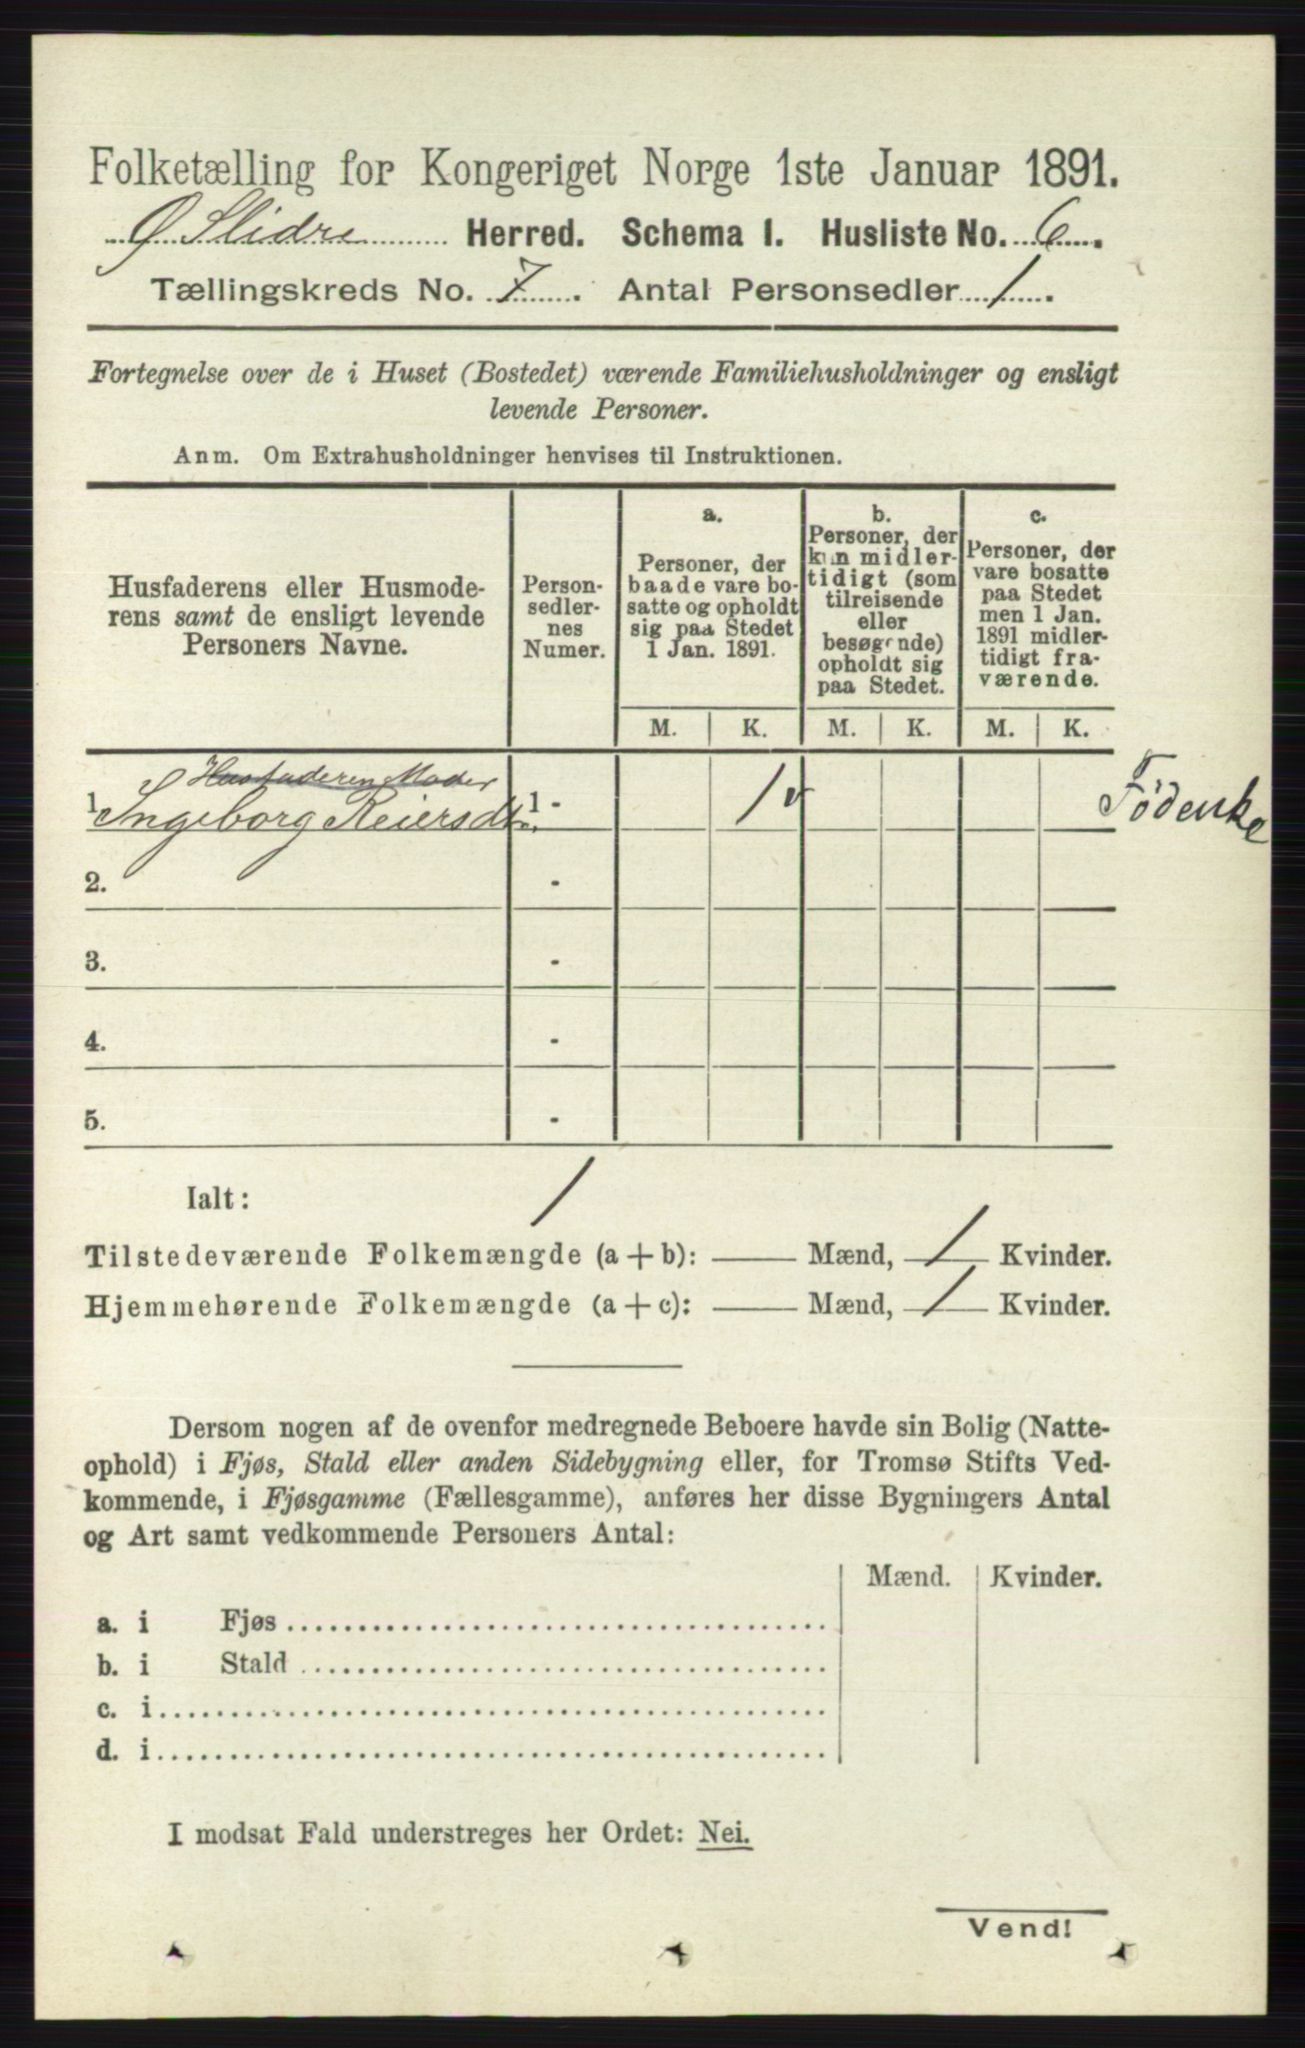 Folketælling for Kongeriget Norge 1ste Januar 1891.
Ø. Slidre Herred. Schema I. Husliste No. 6.
Tællingskreds No. 7. Antal Personsedler 1.
Fortegnelse over de i Huset (Bostedet) værende Familiehusholdninger og ensligt
levende Personer.
Anm. Om Extrahusholdninger henvises til Instruktionen.
Husfaderens eller Husmode-
rens samt de ensligt levende
Personers Navne.
Person-
sedler-
nes
Numer.
a.
Personer, der
baade vare bo-
satte og opholdt
sig paa Stedet
1 Jan. 1891.
b.
Personer, der
kun midler-
tidigt (som
tilreisende
eller
besøgende)
opholdt sig
paa Stedet.
c.
Personer, der
vare bosatte
paa Stedet
men 1 Jan.
1891 midler-
tidigt fra-
værende.
M. K. M. K. M. K.
Husfaderens Moder
1. Ingeborg Reiersdtr. 1 - 1
Føderke
2. -
3. -
4. -
5. -
Ialt: 1
Tilstedeværende Folkemængde (a + b): — Mænd, 1 Kvinder.
Hjemmehørende Folkemængde (a + c): — Mænd, 1 Kvinder.
Dersom nogen af de ovenfor medregnede Beboere havde sin Bolig (Natte-
ophold) i Fjøs, Stald eller anden Sidebygning eller, for Tromsø Stifts Ved-
kommende, i Fjøsgamme (Fællesgamme), anføres her disse Bygningers Antal
og Art samt vedkommende Personers Antal:
Mænd. Kvinder.
a. i Fjøs
b. i Stald
c. i
d. i
I modsat Fald understreges her Ordet: Nei.
Vend!